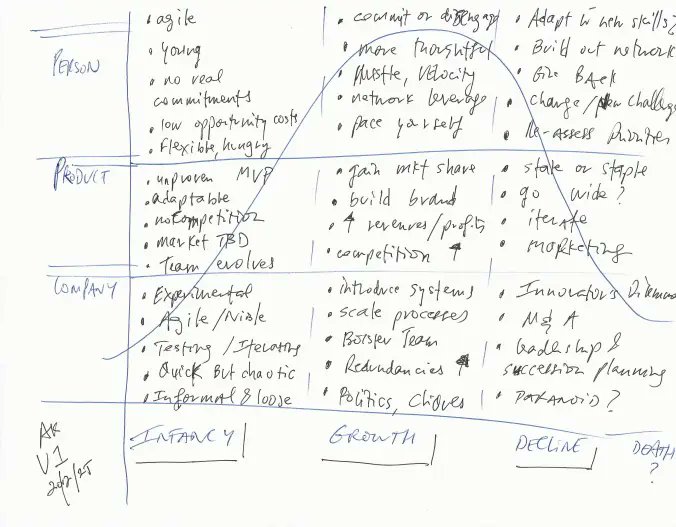 PERSON
• agile
• young
• no real
commitments
• low opportunity costs
• Flexible, hungry
• commit or disengage
• more thoughtful
• Hustle, Velocity
• network leverage
• pace yourself
• Adapt to new skills?
• Build out network
• Give Back
• change / new challenge
• Re-Assess Priorities
PRODUCT
• unproven MVP
• adaptable
• no competition
• market TBD
• Team evolves
• gain mkt share
• build brand
• ↑ revenues/profits
• competition ↑
• stale or staple
• go wide?
• iterate
• marketing
COMPANY
• Experimental
• Agile/Nimble
• Testing / Iterating
• Quick But chaotic
• Informal & loose
• introduce systems
• scale processes
• Bolster Team
• Redundancies ↑
• Politics, Cliques
• Innovators Dilemma
• M & A
• leadership &
succession planning
• PARANOID?
AK
V1
INFANCY
GROWTH
DECLINE
DEATH
?